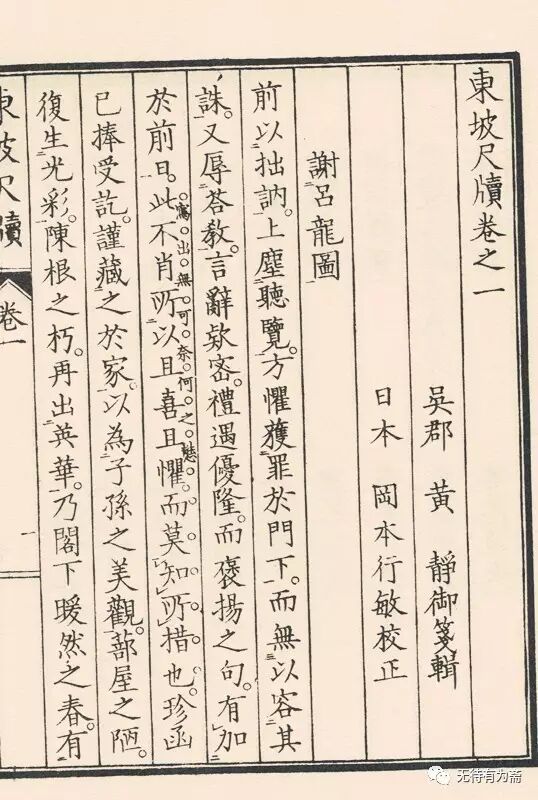 東坡尺牘卷之一
吳郡 黃 靜御箋輯
日本 岡本行敏校正
謝呂龍圖
前以拙訥。上塵聽覽。方懼獲罪於門下。而無以容其
誅。又辱荅教。言辭欵密。禮遇優隆。而褒揚之句。有加
於前日。此不肖所以且喜且懼。而莫知所措也。珍函
寫出無可奈何之
已捧受訖。謹藏之於家。以為子孫之美觀。蔀屋之陋。
復生光彩。陳根之朽。再出英華。乃閣下暖然之春。有
東坡尺牘
卷一
一
无待有为斋